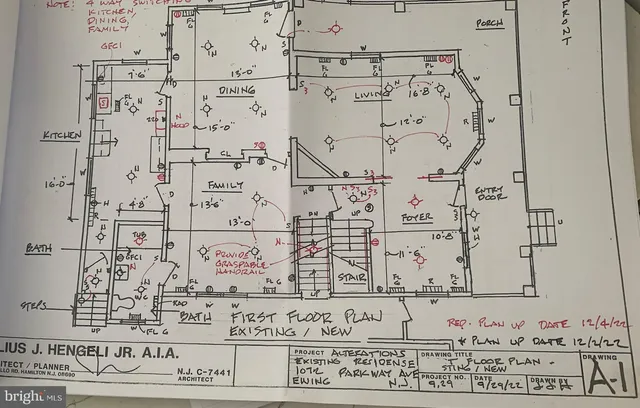 NOTE: 4 WAY SWITCHING
KITCHEN,
DINING,
FAMILY
GFCI
FRONT
PORCH
7'-6"
13'-0"
DINING
LIVING
16'-8"
12'-0"
15'-0"
220
HOOD
KITCHEN
16'-0"
CL
FAMILY
13'-6"
13'-0"
4'-8"
TUB
GFCI
BATH
WC
STEPS
UP
RAD
FL G
PROVIDE
GRASPABLE
HANDRAIL
DN
UP
STAIR
FOYER
11'-6"
10'-8"
ENTRY
DOOR
U
BATH
FIRST FLOOR PLAN
EXISTING / NEW
REP. PLAN UP DATE 12/4/22
* PLAN UP DATE 12/2/22
LIUS J. HENGELI JR. A.I.A.
ARCHITECT / PLANNER
HAMILTON N.J.
N.J. C-7441
ARCHITECT
PROJECT ALTERATIONS
EXISTING RESIDENSE
1072 PARKWAY AVE
EWING N.J.
DRAWING TITLE
FLOOR PLAN -
STING / NEW
PROJECT NO. 9,29
DATE 9/29/22
DRAWN BY
DRAWING
A-1
bright MLS